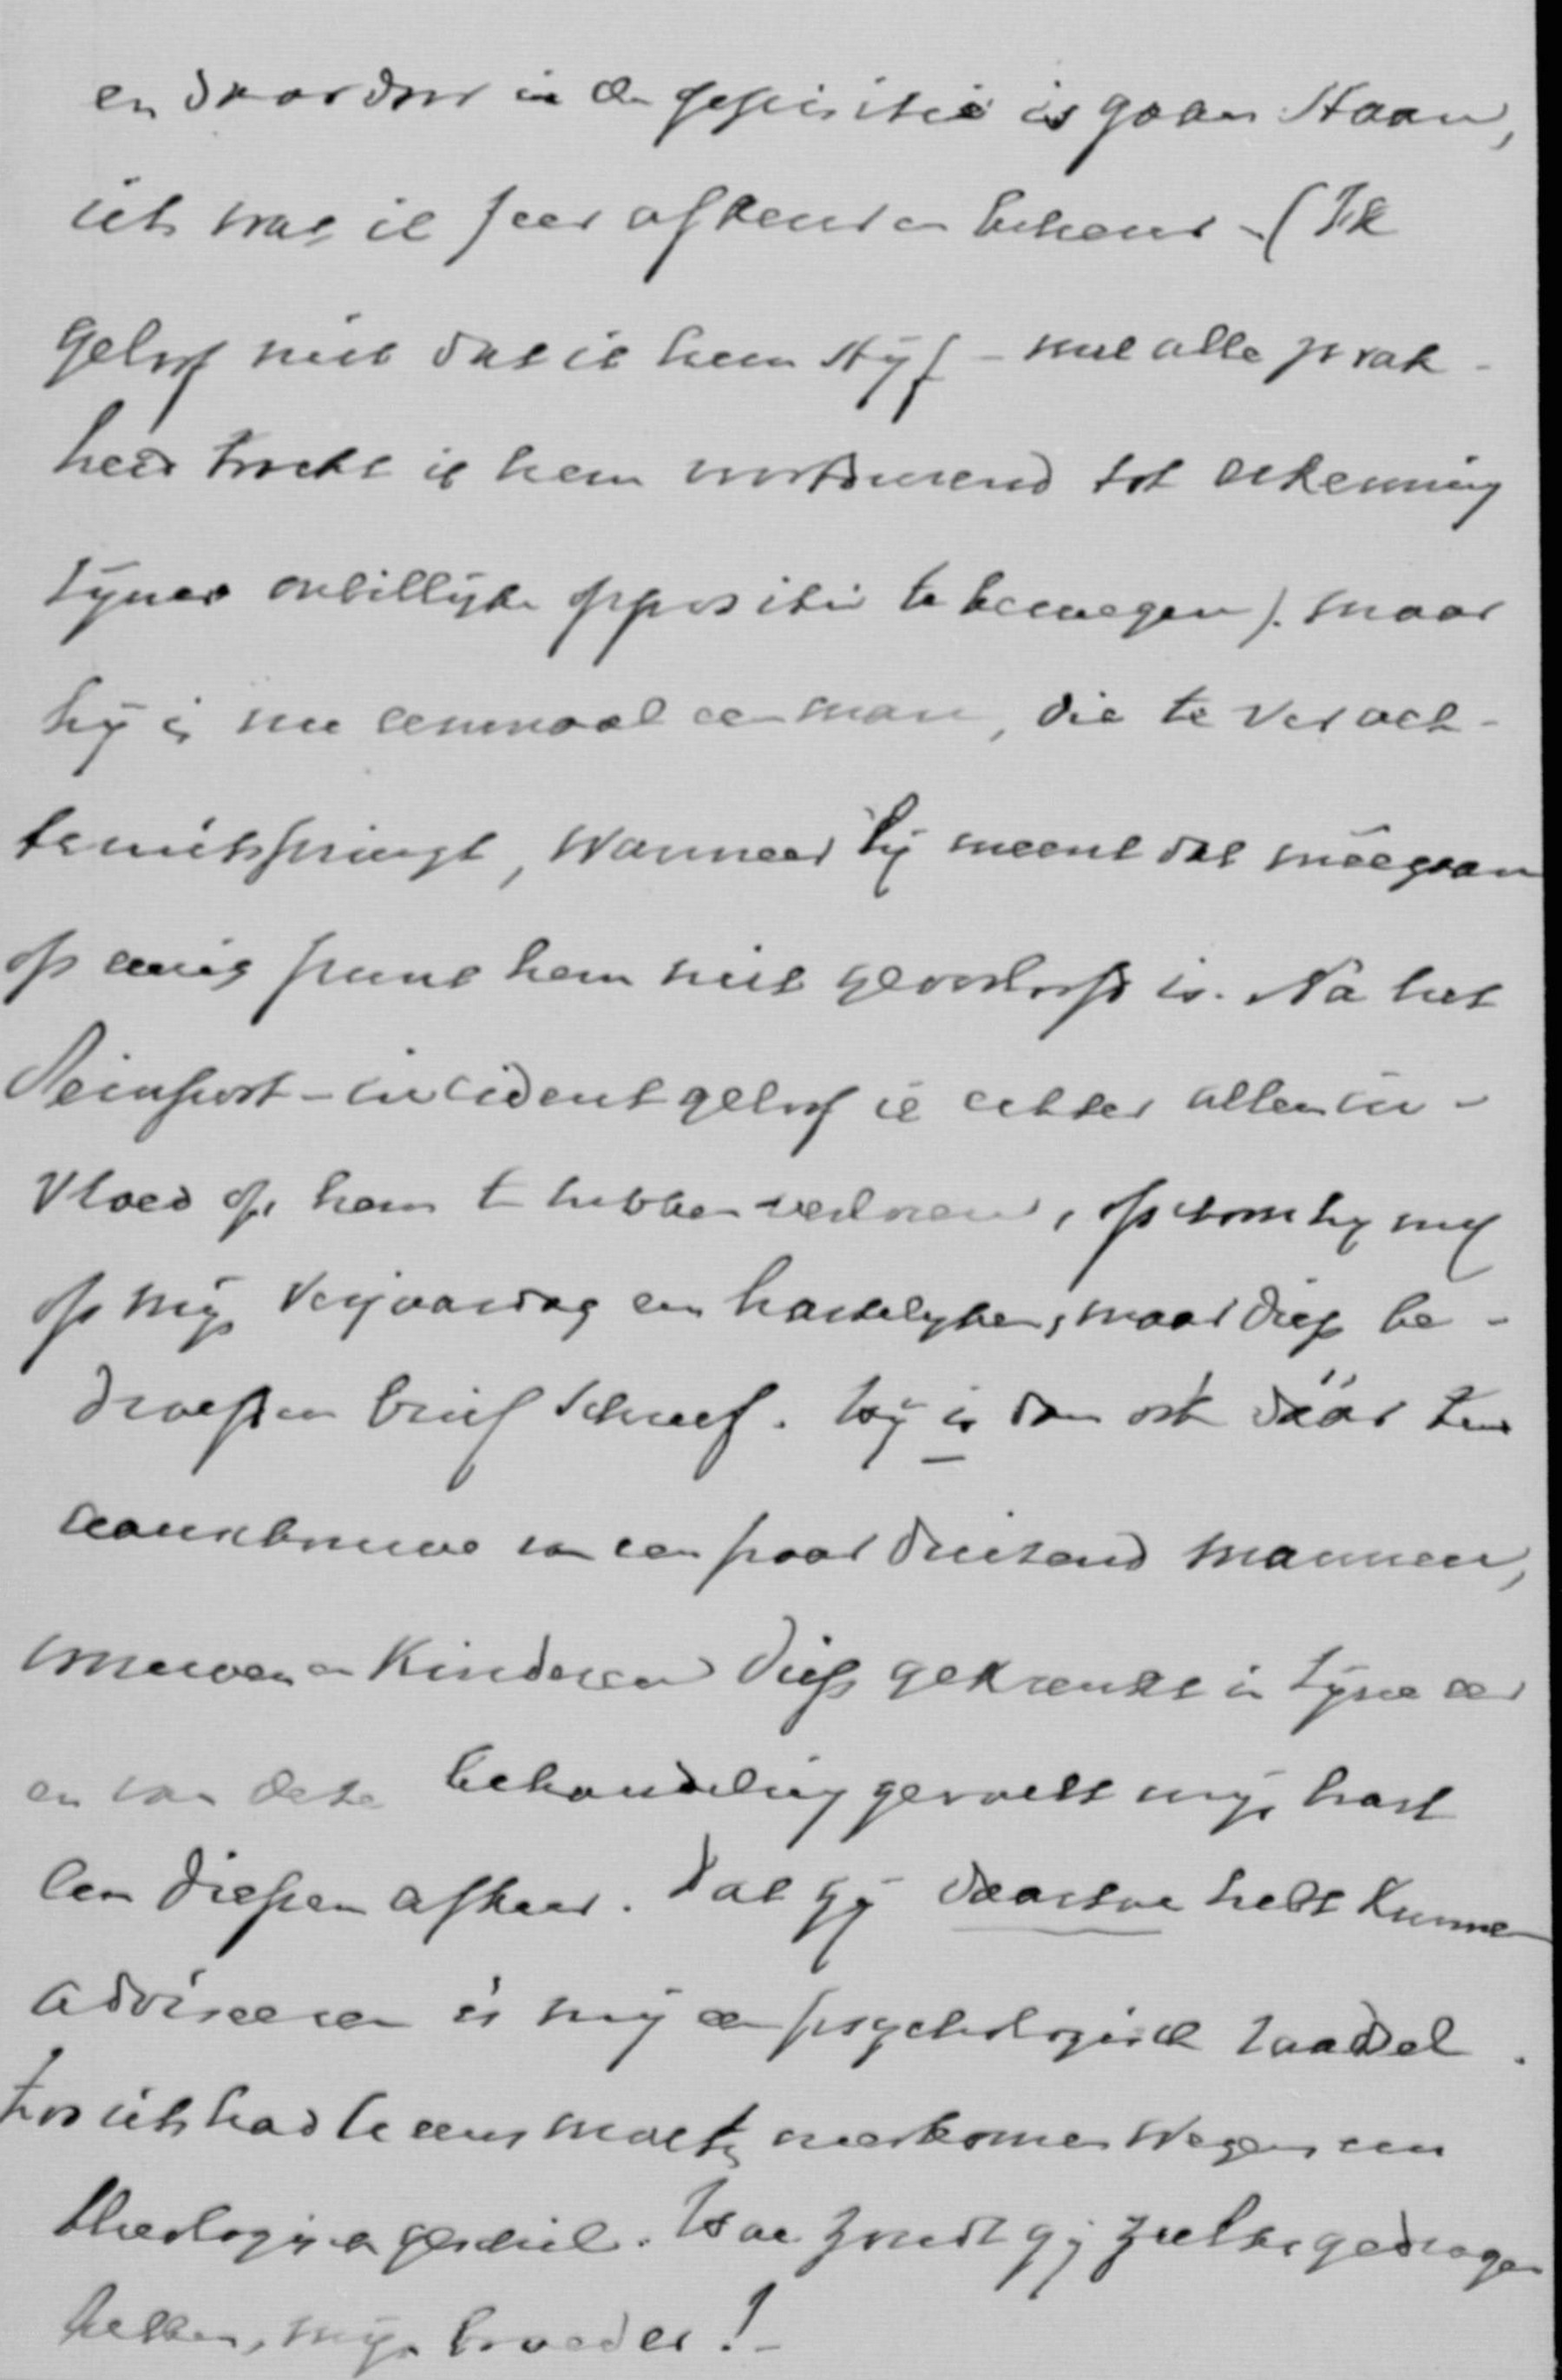 en daardoor in de oppositie is gaan staan,
iets wat ik zeer afkeur en betreur – (Ik
geloof niet dat ik hem styf – met alle zwak-
heid tracht ik hem voortdurend tot erkenning
zyner onbillyke oppositie te bewegen). maar
hy is nu eenmaal een man, die te ver ach-
teruitspringt, wanneer hy meent dat méégaan
op eenig punt hem niet geoorloofd is. Na het
incident geloof ik echter allen in-
vloed op hem te hebben verloren, ofschoon hy my
op myn verjaardag een hartelyken, maar diep be-
droefden brief schreef. Hy is dan ook dáár ten
van een paar duizend mannen,
vrouwen en kinderen diep gekrenkt in zyne eer
en van deze behandeling gevoelt myn hart
een diepen afkeer. Dat gy daartoe hebt kunnen
adviseeren is my een psychologisch raadsel.
Zoo iets had U eens moeten overkomen wegens een
theologisch geschil. Hoe zoudt gy zulks gedragen
hebben, myn broeder! –